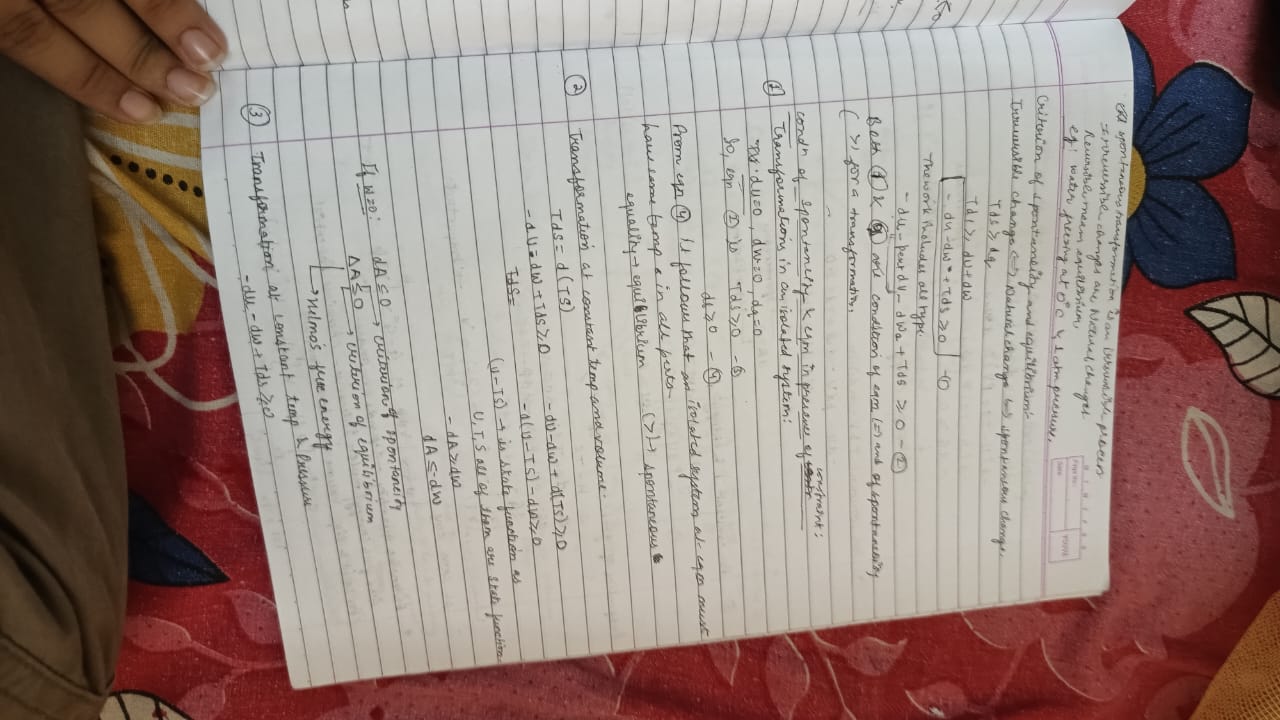 All spontaneous transformation is an irreversible process
irreversible changes are Natural changes
Reversible mean equilibrium.
eg: water freezing at 0°C & 1 atm pressure.
Page No:
Date
YOUVA
Criterion of spontaneity and equilibrium:
Irreversible change ↔ Natural change ↔ spontaneous change.
Tds ≥ dq
Tds ≥ dU + dw
- dU - dw + Tds ≥ 0 - ①
The work includes all type.
- dU - Pext dV - dWa + Tds ≥ 0 - ②
Both ① & ② are condition of eqm (=) and of spontaneity
(>) for a transformation.
condn of spontaneity & eqm in presence of constraint:
① Transformation in an isolated system:
dU=0, dw=0, dq=0
So, eqn ① is Tds ≥ 0 - ③
ds ≥ 0 - ④
From eqn ④ it follows that an isolated system at eqm must
have same temp in all parts
equality → equilibrium (>) → spontaneous
② Transformation at constant temp and volume.
Tds = d(TS)
- dU - dw + Tds ≥ 0 - dU - dw + d(TS) ≥ 0
- d(U-TS) - dw ≥ 0
Tds =
(U-TS) → is state function as
U, T, S all of them are state function
- dA ≥ dw
dA ≤ -dw
If w=0. dA ≤ 0 → criterion of spontaneity
ΔA ≤ 0 → criterion of equilibrium
→ Helmo's free energy
③ Transformation at constant temp & Pressure
- dU - dw + Tds ≥ 0